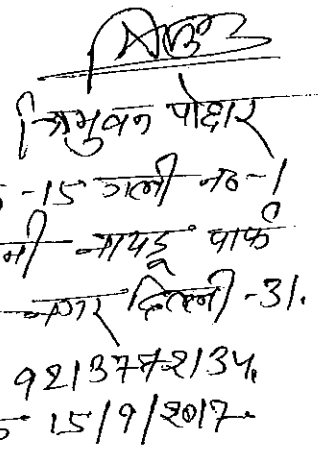 त्रिभुवन पोद्दार
-15 गली नं०-1
नायडू पार्क
नगर दिल्ली -31.
9213772134,
15/9/2017.